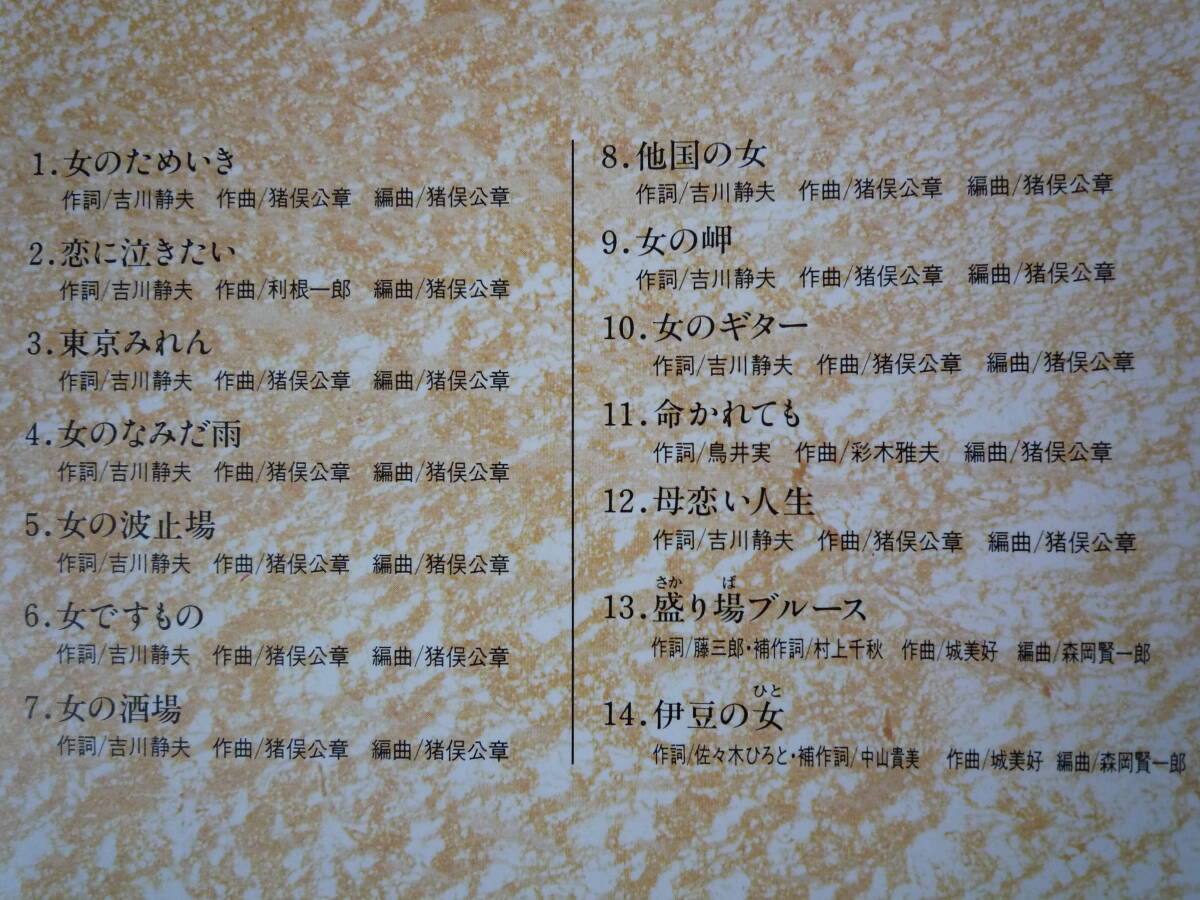 1.女のためいき
作詞/吉川静夫 作曲/猪俣公章 編曲/猪俣公章
2.恋に泣きたい
作詞/吉川静夫 作曲/利根一郎 編曲/猪俣公章
3.東京みれん
作詞/吉川静夫 作曲/猪俣公章 編曲/猪俣公章
4.女のなみだ雨
作詞/吉川静夫 作曲/猪俣公章 編曲/猪俣公章
5.女の波止場
作詞/吉川静夫 作曲/猪俣公章 編曲/猪俣公章
6.女ですもの
作詞/吉川静夫 作曲/猪俣公章 編曲/猪俣公章
7.女の酒場
作詞/吉川静夫 作曲/猪俣公章 編曲/猪俣公章
8.他国の女
作詞/吉川静夫 作曲/猪俣公章 編曲/猪俣公章
9.女の岬
作詞/吉川静夫 作曲/猪俣公章 編曲/猪俣公章
10.女のギター
作詞/吉川静夫 作曲/猪俣公章 編曲/猪俣公章
11.命かれても
作詞/鳥井実 作曲/彩木雅夫 編曲/猪俣公章
12.母恋い人生
作詞/吉川静夫 作曲/猪俣公章 編曲/猪俣公章
さか ば
13.盛り場ブルース
作詞/藤三郎・補作詞/村上千秋 作曲/城美好 編曲/森岡賢一郎
ひと
14.伊豆の女
作詞/佐々木ひろと・補作詞/中山貴美 作曲/城美好 編曲/森岡賢一郎